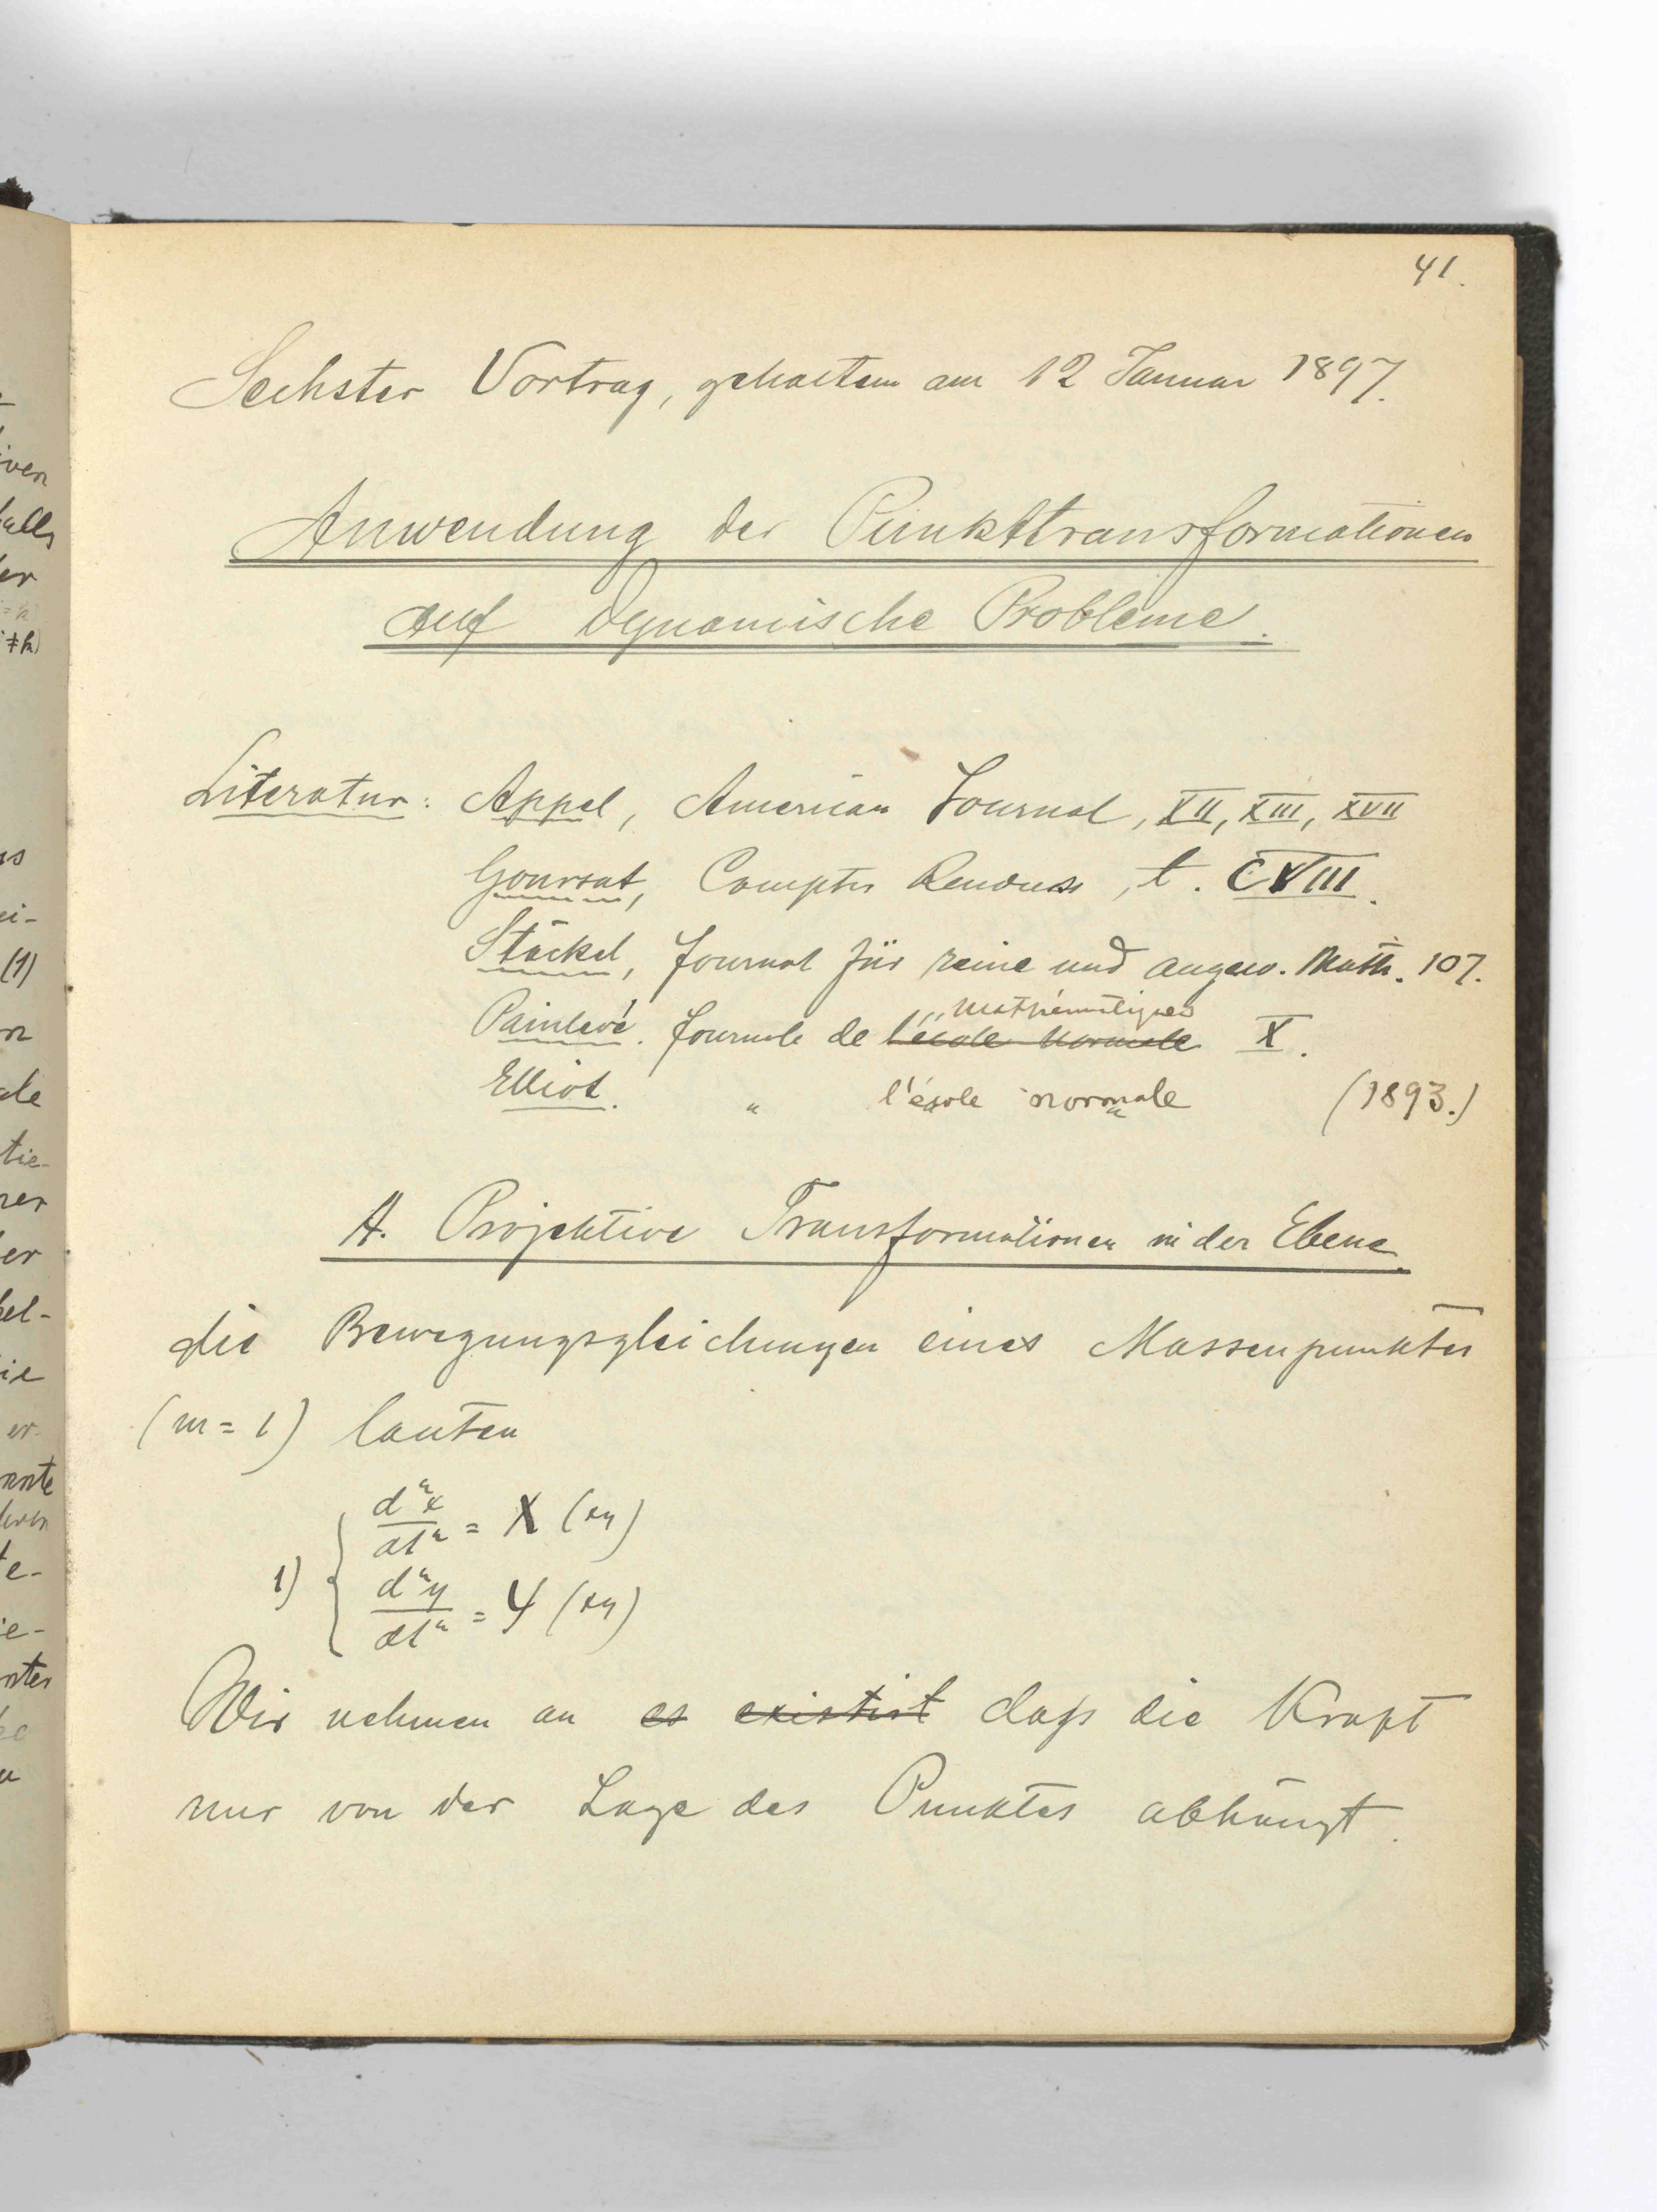 41.
Sechster Vortrag, gehalten am 12 Januar 1897.
Anwendung der Punkttransformationen
auf dynamische Probleme.
Literatur: Appel, American Journal, XII, XIII, XVII
Goursat, Comptes Rendus, t. CVIII.
Stäckel, Journal für reine und angew. Math. 107.
mathématiques
Painlevé. Journale de l'école normale X.
Elliot. " l'école normale (1893.)
A. Projektive Transformationen in der Ebene.
die Bewegungsgleichungen eines Massenpunktes
(m = 1) lauten
d²x/dt² = X (xy)
1)
d²y/dt² = Y (xy)
Wir nehmen an es existirt daß die Kraft
nur von der Lage des Punktes abhängt.
iven
falls
er
‡h)
as
ei-
(1)
n
ale
tie-
rer
er
kel-
ie
er
nnte
te-
ie-
nter